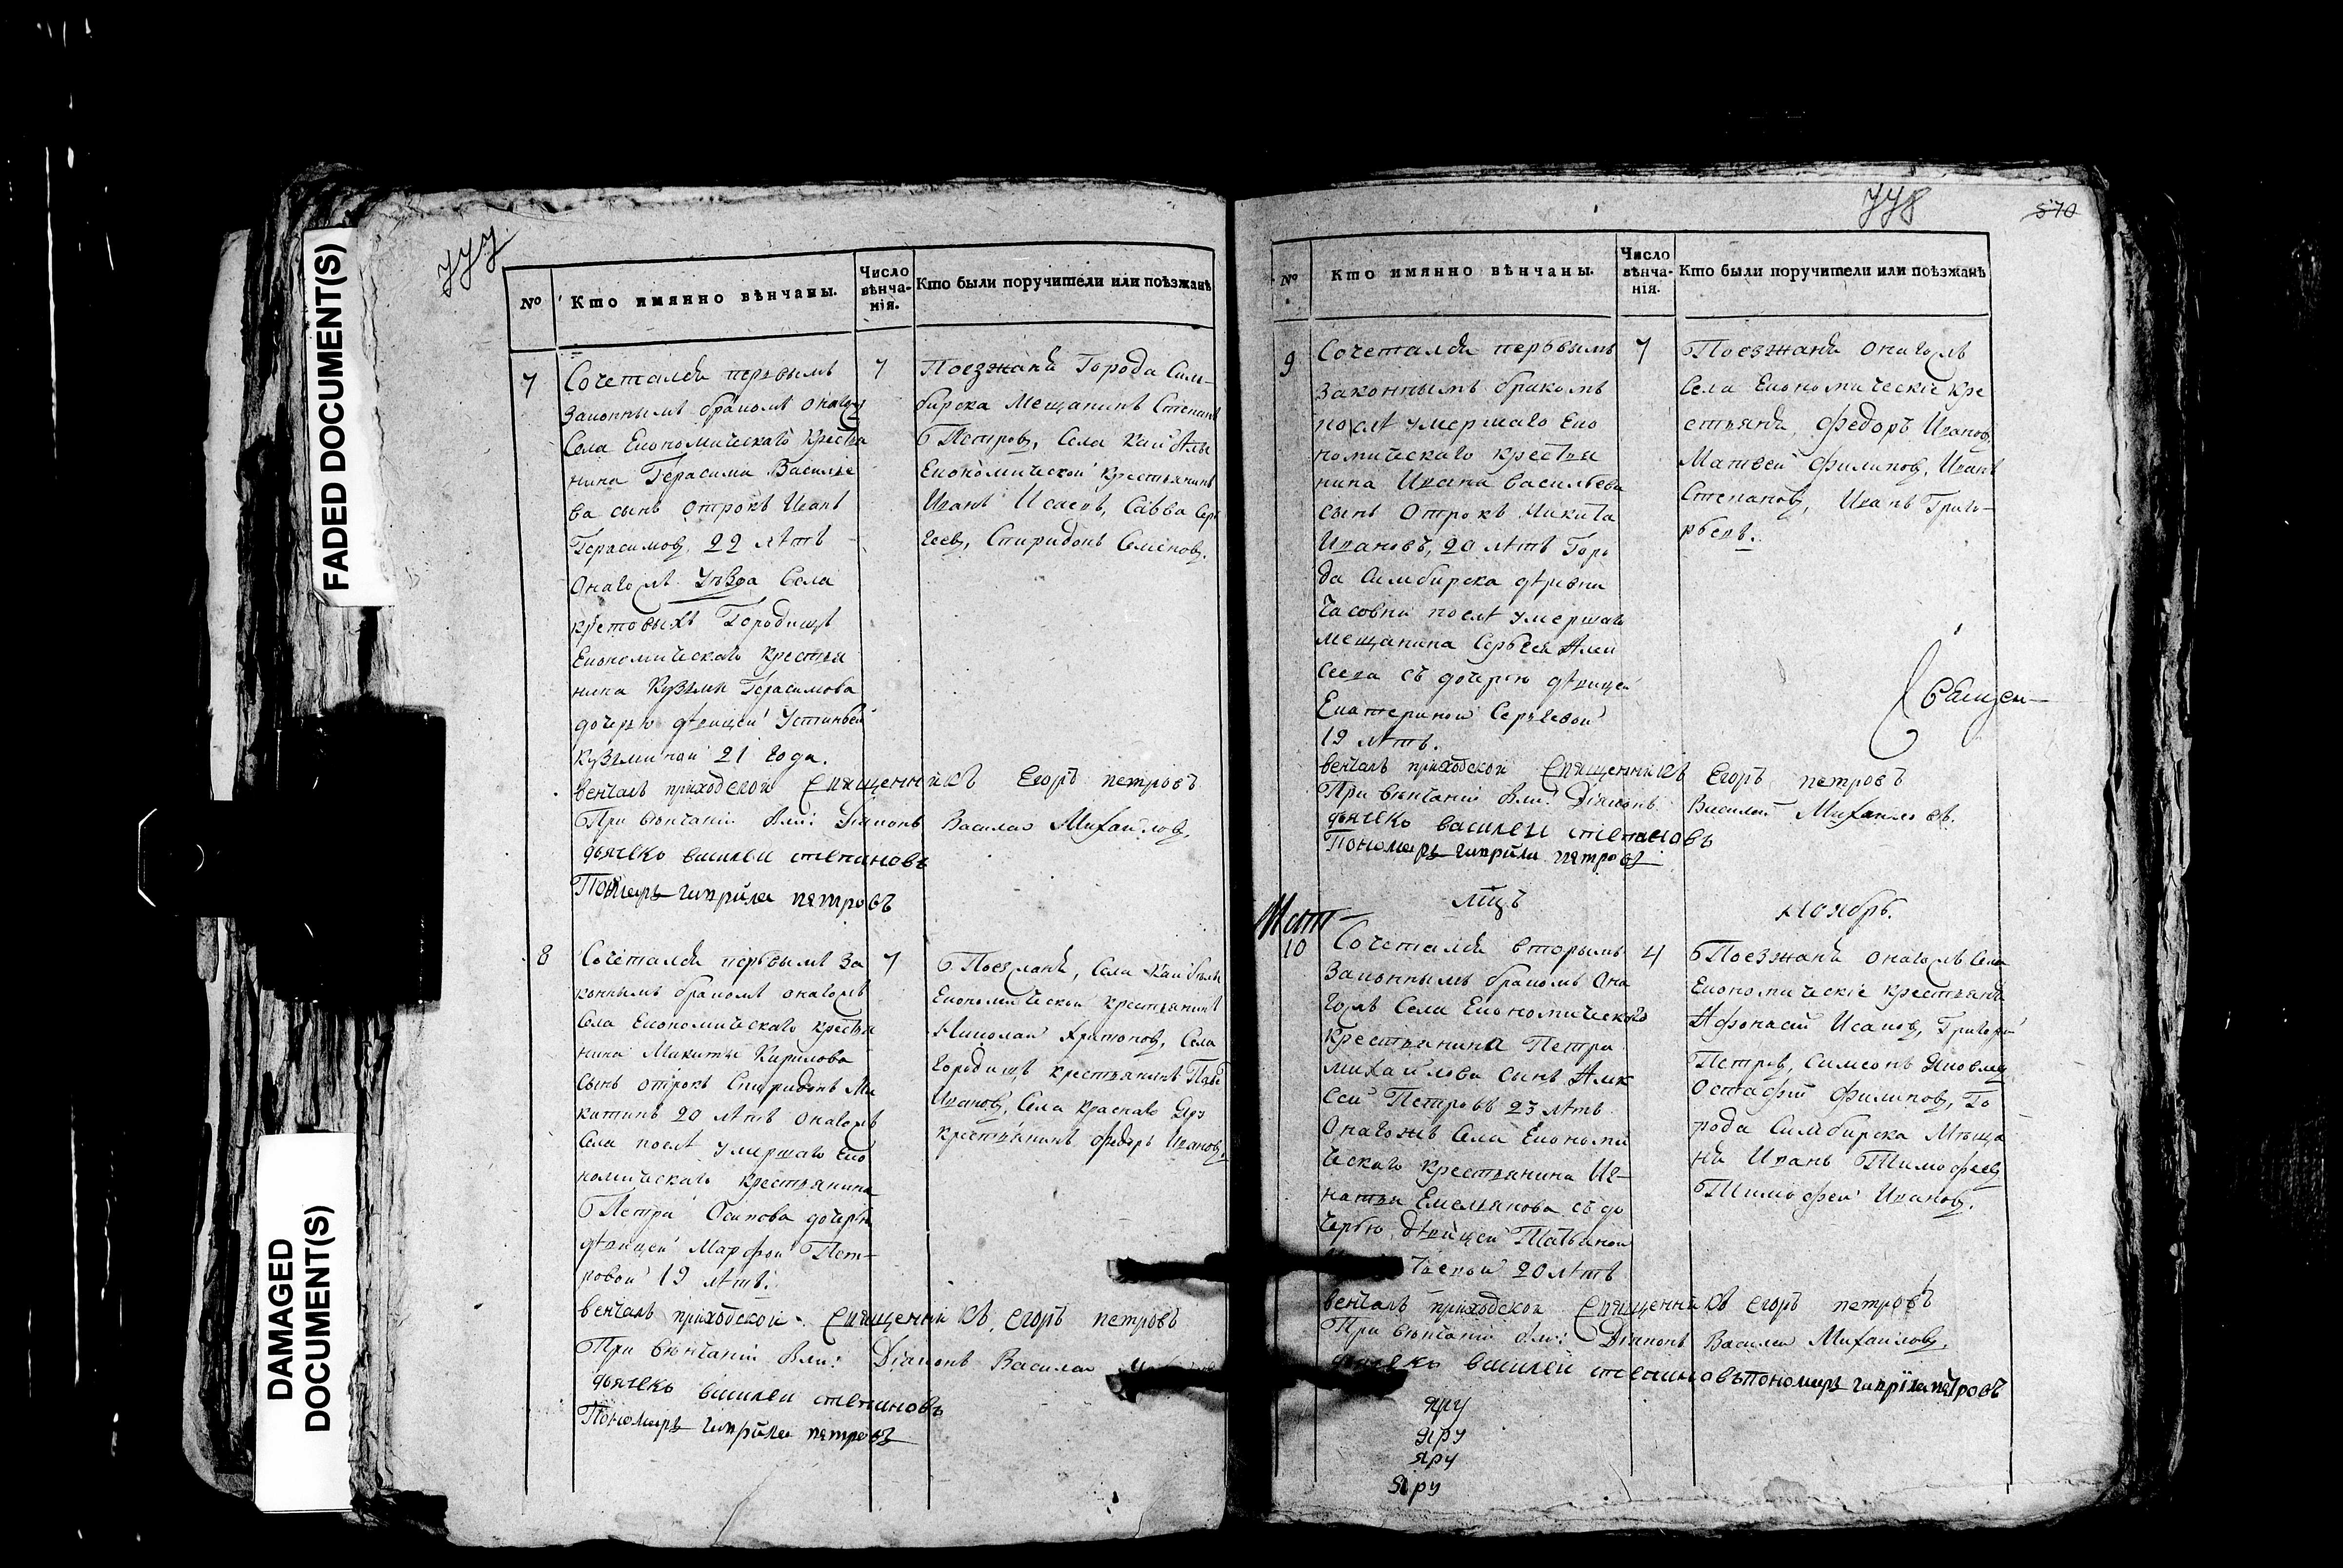 FADED DOCUMENT(S)
DAMAGED
DOCUMENT(S)
777
№
Кто имянно вѣнчаны.
Число
вѣнча-
нія.
Кто были поручители или поѣзжанѣ
7
Сочетался первымъ
Законнымъ бракомъ онагожъ
Села Економическаго Крестья
нина Герасима Василье
ва сынъ отрокъ Иванъ
Герасимовъ, 22 лѣтъ
Онагожъ Уѣзда Села
крестовыхъ Городищъ
Економическаго крестья
нина Кузмы Герасимова
дочерью дѣвицей Устиньей
кузминой 21 года.
7
Поезжанѣ Города Сим-
бирска Мещанинъ Степанъ
Петровъ, Села Каибѣлы
Економической крестьянинъ
Иванъ Исаевъ, Савва Сер
геевъ, Спиридонъ Семеновъ.
венчалъ приходской Священникъ Егоръ петровъ
При вѣнчаніи были: Діаконъ Василей Михаиловъ,
дьячекъ василеи степановъ
Пономарь гаврила петровъ
8
Сочетался первымъ За
коннымъ бракомъ онагожъ
Села Економическаго крестья
нина Микиты Кирилова
сынъ отрокъ Спиридонъ Ми
китинъ 20 лѣтъ онагожъ
Села послѣ умершаго Еко
номическаго крестьянина
Петра Осипова дочерью
дѣвицей Марфой Пет-
ровой 19 лѣтъ.
7
Поезжанѣ, Села Каибѣлы
Економической крестьянинъ
Николай Харитоновъ, Села
Городищъ крестьянинъ
Ивановъ, Села Краснаго Яру
крестьянинъ федоръ Ивановъ,
венчалъ приходской Священникъ, Егоръ петровъ
При вѣнчаніи были: Діаконъ Василеи
дьячекъ василеи степановъ
Пономарь гаврила петровъ
778
570
№
Кто имянно вѣнчаны.
Число
вѣнча-
нія.
Кто были поручители или поѣзжанѣ
9
Сочетался первымъ
Законнымъ бракомъ
послѣ умершаго Еко
номическаго крестья
нина Ивана Васильева
сынъ Отрокъ Микита
Ивановъ, 20 лѣтъ Горо
да Симбирска дѣревни
Часовни послѣ умершаго
мещанина Сергѣя Алек
сеева съ дочерью дѣвицей
Екатериной Сергѣевой
19 лѣтъ.
7
Поезжанѣ онагожъ
Села Економическіе Кре
стьянѣ, Федоръ Ивановъ,
Матвей Филиповъ, Иванъ
Степановъ, Иванъ Григо-
рьевъ.
Священ-
венчалъ приходской Священникъ Егоръ петровъ
При вѣнчаніи были: Діаконъ Василей Михаиловъ.
дьячекъ василеи степановъ
Пономарь гаврила петровъ
мцъ Ноябрь.
10
Сочетался вторымъ
Законнымъ бракомъ Она
гожъ Села Економическаго
Крестьянина Петра
михайлова сынъ Алек
сей Петровъ 23 лѣтъ
Онагожъ Села Економи
ческаго крестьянина Иг-
натья Емельянова съ до
черью, дѣвицей Татьяной
20 лѣтъ
4
Поезжанѣ онагожъ Села
Економическіе крестьянѣ
Афонасій Исаковъ, Григорей
Петровъ, Симеонъ Яковлевъ
Остафій Филиповъ, Го
рода Симбирска Мѣща
не Иванъ Тимофеевъ
Тимофей Ивановъ.
венчалъ приходской Священникъ Егоръ петровъ
При вѣнчаніи были: Діаконъ Василеи Михаиловъ,
дьячекъ василеи степановъ пономарь гаврила петровъ
яру
яру
яру
яру